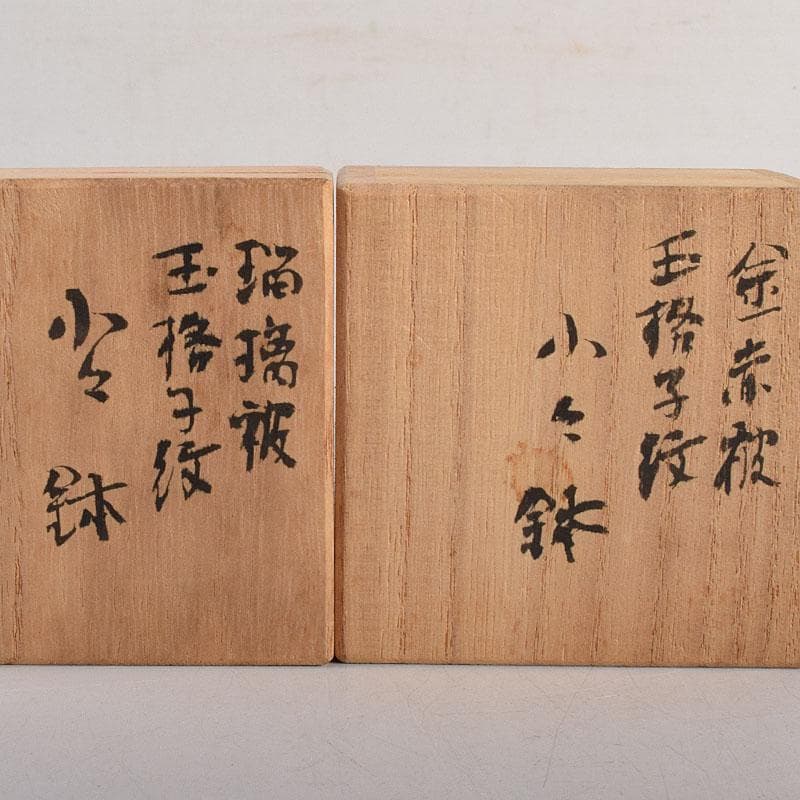 瑠璃被
玉格子紋
小々鉢
金赤被
玉格子紋
小々鉢